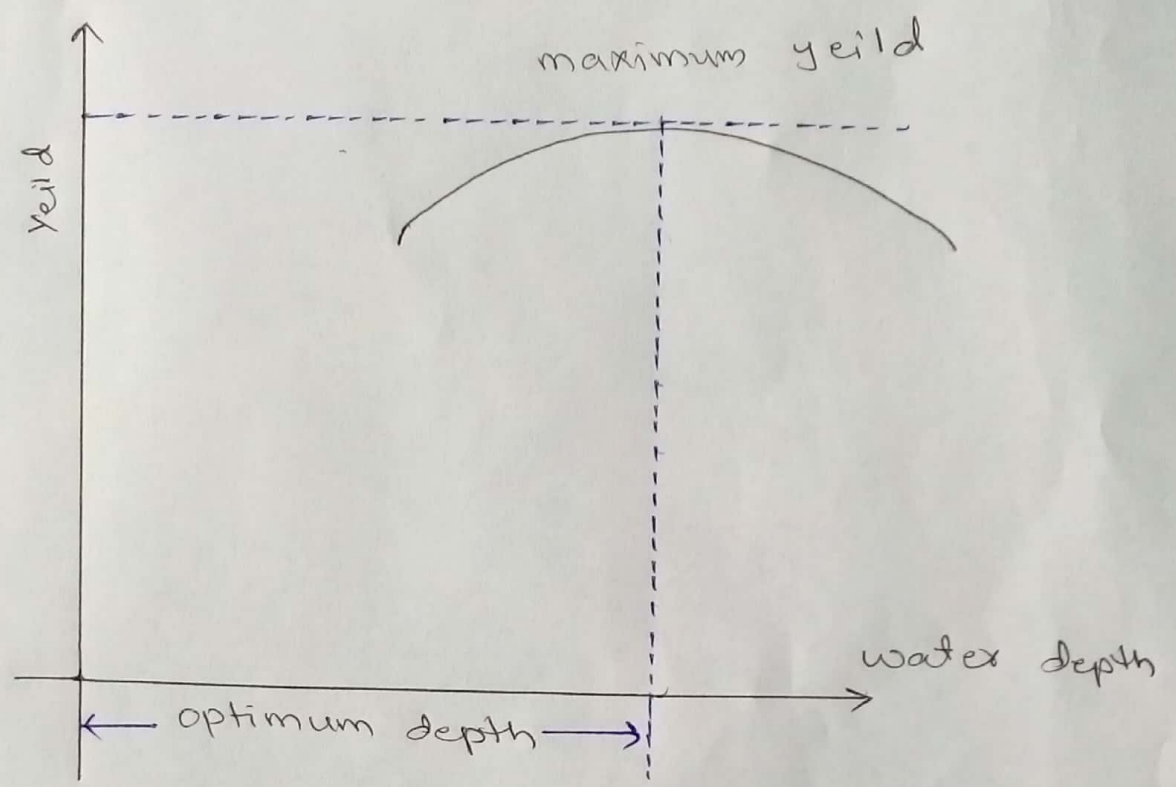 maximum yeild
yeild
water depth
optimum depth